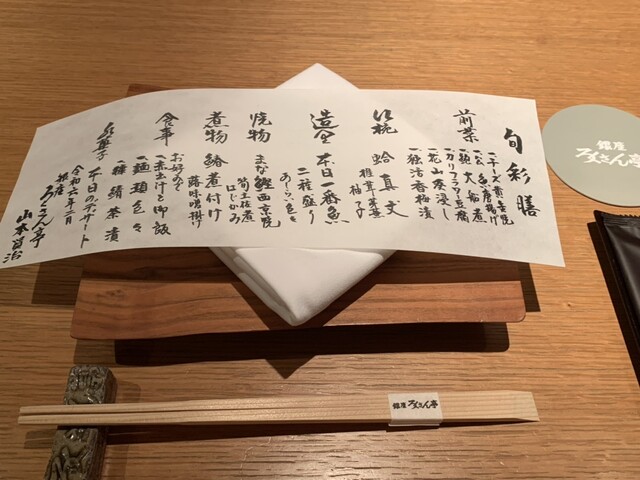 旬彩膳
前菜
一、チーズ黄金焼
一、公魚唐揚げ
一、鞍大船煮
一、カリフラワー豆腐
一、花山葵浸し
一、独活香梅漬
口椀
蛤真丈
椎茸 菜葉
柚子
造里
本日一番魚
二種盛り
あしらい色々
焼物
まな鰹西京焼
筍土佐煮
はじかみ
煮物
鰆煮付け
蕗味噌掛け
食事
お好みで
一、赤出汁と御飯
一、麺類色々
一、鯖茶漬
水菓子
本日のデザート
令和六年二月
銀座 ろくさん亭
山本晋治
銀座
ろくさん亭
銀座 ろくさん亭